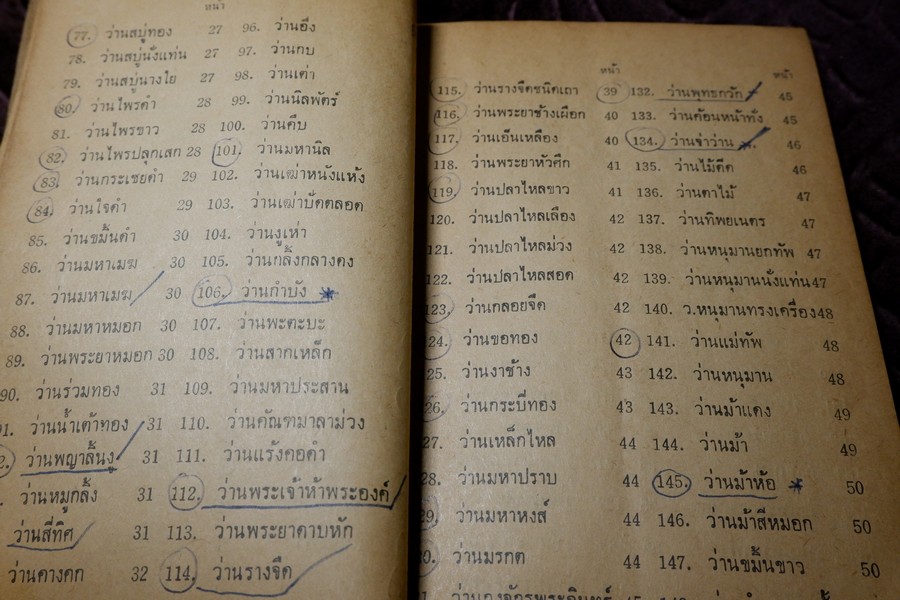 หน้า
77. ว่านสบู่ทอง 27
78. ว่านสบู่นั่งแท่น 27
79. ว่านสบู่นางใย 27
80. ว่านไพรดำ 28
81. ว่านไพรขาว 28
82. ว่านไพรปลุกเสก 28
83. ว่านกระเชยดำ 29
84. ว่านใจดำ 29
85. ว่านขมิ้นดำ 30
86. ว่านมหาเมฆ 30
87. ว่านมหาเมฆ 30
88. ว่านมหาหมอก 30
89. ว่านพระยาหมอก 30
90. ว่านร่วมทอง 31
91. ว่านน้ำเต้าทอง 31
2. ว่านพญาลิ้นงู 31
ว่านหมูกลิ้ง 31
ว่านสี่ทิศ 31
ว่านคางคก 32
96. ว่านอึ่ง
97. ว่านกบ
98. ว่านเต่า
99. ว่านนิลพัตร์
100. ว่านคืบ
101. ว่านมหานิล
102. ว่านเฒ่าหนังแห้ง
103. ว่านเฒ่าปัดตลอด
104. ว่านงูเห่า
105. ว่านกลิ้งกลางดง
106. ว่านกำบัง
107. ว่านพะตะบะ
108. ว่านสากเหล็ก
109. ว่านมหาประสาน
110. ว่านคัณฑมาลาม่วง
111. ว่านแร้งคอดำ
112. ว่านพระเจ้าห้าพระองค์
113. ว่านพระยาดาบหัก
114. ว่านรางจืด
หน้า
115. ว่านรางจืดชนิดเถา 39
116. ว่านพระยาช้างเผือก 40
117. ว่านเอ็นเหลือง 40
118. ว่านพระยาหัวศึก 41
119. ว่านปลาไหลขาว 41
120. ว่านปลาไหลเลือง 42
121. ว่านปลาไหลม่วง 42
122. ว่านปลาไหลสอด 42
123. ว่านกลอยจืด 42
124. ว่านขอทอง 42
25. ว่านงาช้าง 43
26. ว่านกระบี่ทอง 43
27. ว่านเหล็กไหล 44
28. ว่านมหาปราบ 44
29. ว่านมหาหงส์ 44
0. ว่านมรกต 44
หน้า
132. ว่านพุทธกวัก 45
133. ว่านค้อนหน้าทั่ง 45
134. ว่านข่าว่าน 46
135. ว่านไม้ดีด 46
136. ว่านตาไม้ 47
137. ว่านทิพยเนตร 47
138. ว่านหนุมานยกทัพ 47
139. ว่านหนุมานนั่งแท่น 47
140. ว.หนุมานทรงเครื่อง 48
141. ว่านแม่ทัพ 48
142. ว่านหนุมาน 48
143. ว่านม้าแดง 49
144. ว่านม้า 49
145. ว่านม้าห้อ 50
146. ว่านม้าสีหมอก 50
147. ว่านขมิ้นขาว 50